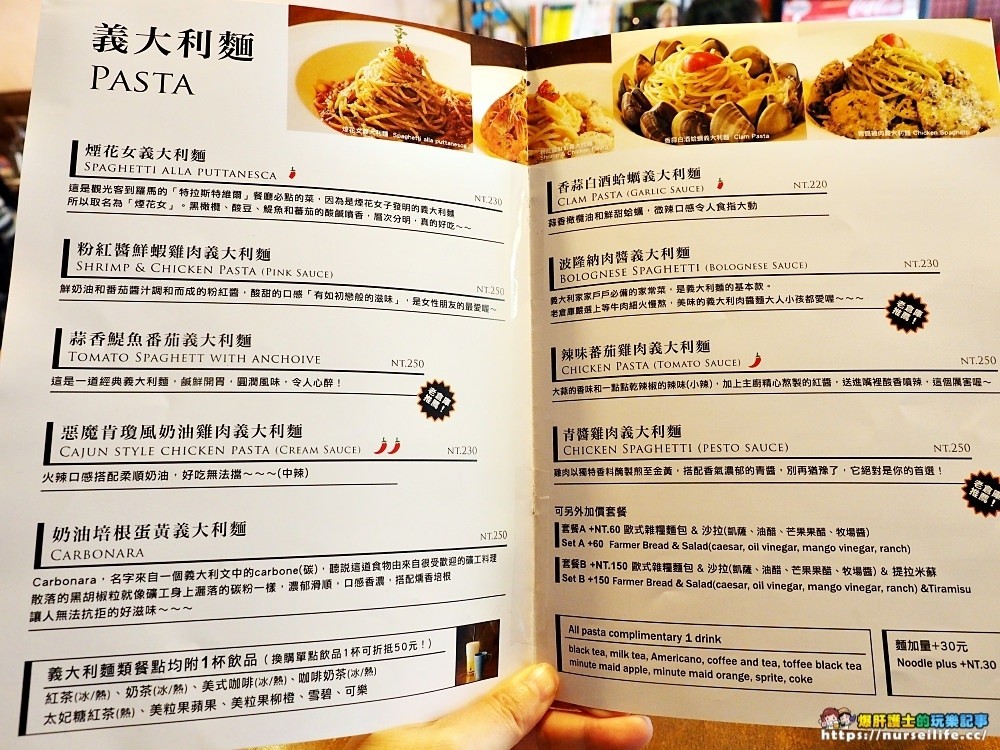 義大利麵
PASTA
煙花女義大利麵 Spaghetti alla puttanesca
香蒜白酒蛤蠣義大利麵 Clam Pasta
青醬雞肉義大利麵 Chicken Spaghetti
煙花女義大利麵
SPAGHETTI ALLA PUTTANESCA
NT.230
這是觀光客到羅馬的「特拉斯特維爾」餐廳必點的菜，因為是煙花女子發明的義大利麵
所以取名為「煙花女」。黑橄欖、酸豆、鯷魚和蕃茄的酸鹹噴香，層次分明，真的好吃～～
粉紅醬鮮蝦雞肉義大利麵
SHRIMP & CHICKEN PASTA (PINK SAUCE)
NT.250
鮮奶油和番茄醬汁調和而成的粉紅醬，酸甜的口感「有如初戀般的滋味」，是女性朋友的最愛喔～
蒜香鯷魚番茄義大利麵
TOMATO SPAGHETT WITH ANCHOIVE
NT.250
這是一道經典義大利麵，鹹鮮開胃，圓潤風味，令人心醉！
老倉庫
推薦！
惡魔肯瓊風奶油雞肉義大利麵
CAJUN STYLE CHICKEN PASTA (CREAM SAUCE)
NT.230
火辣口感搭配柔順奶油，好吃無法擋～～～(中辣)
奶油培根蛋黃義大利麵
CARBONARA
NT.250
Carbonara，名字來自一個義大利文中的carbone(碳)，聽說這道食物由來自很受歡迎的礦工料理
散落的黑胡椒粒就像礦工身上灑落的碳粉一樣，濃郁滑順，口感香濃，搭配燻香培根
讓人無法抗拒的好滋味～～～
義大利麵類餐點均附1杯飲品（換購單點飲品1杯可折抵50元！）
紅茶(冰/熱)、奶茶(冰/熱)、美式咖啡(冰/熱)、咖啡奶茶(冰/熱)
太妃糖紅茶(熱)、美粒果蘋果、美粒果柳橙、雪碧、可樂
香蒜白酒蛤蠣義大利麵
CLAM PASTA (GARLIC SAUCE)
NT.220
蒜香橄欖油和鮮甜蛤蠣，微辣口感令人食指大動
波隆納肉醬義大利麵
BOLOGNESE SPAGHETTI (BOLOGNESE SAUCE)
NT.230
義大利家家戶戶必備的家常菜，是義大利麵的基本款。
老倉庫嚴選上等牛肉細火慢熬，美味的義大利肉醬麵大人小孩都愛喔～～～
老倉庫
推薦！
辣味蕃茄雞肉義大利麵
CHICKEN PASTA (TOMATO SAUCE)
NT.250
大蒜的香味和一點點乾辣椒的辣味(小辣)，加上主廚精心熬製的紅醬，送進嘴裡酸香噴辣，這個厲害喔～
青醬雞肉義大利麵
CHICKEN SPAGHETTI (PESTO SAUCE)
NT.250
雞肉以獨特香料醃製煎至金黃，搭配香氣濃郁的青醬，別再猶豫了，它絕對是你的首選！
老倉庫
推薦！
可另外加價套餐
套餐A +NT.60 歐式雜糧麵包 & 沙拉(凱薩、油醋、芒果果醋、牧場醬)
Set A +60 Farmer Bread & Salad(caesar, oil vinegar, mango vinegar, ranch)
套餐B +NT.150 歐式雜糧麵包 & 沙拉(凱薩、油醋、芒果果醋、牧場醬) & 提拉米蘇
Set B +150 Farmer Bread & Salad(caesar, oil vinegar, mango vinegar, ranch) &Tiramisu
All pasta complimentary 1 drink
black tea, milk tea, Americano, coffee and tea, toffee black tea
minute maid apple, minute maid orange, sprite, coke
麵加量+30元
Noodle plus +NT.30
爆肝護士的玩樂記事
https://nurseilife.cc/